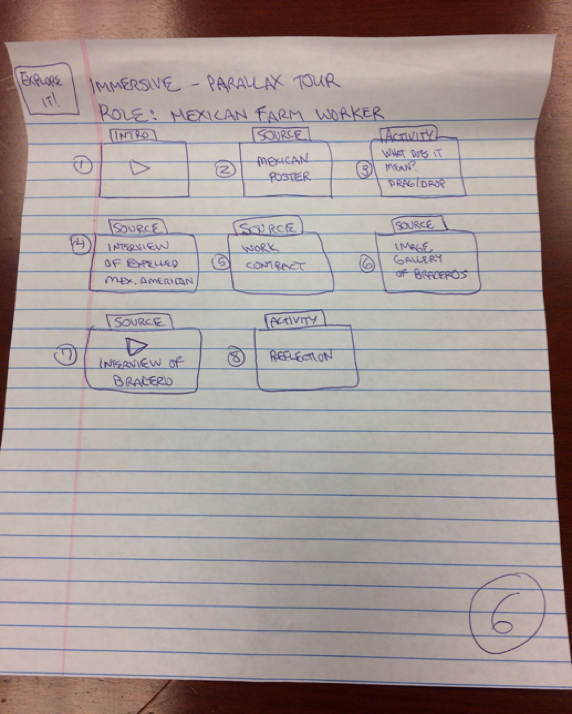 EXPLORE
IT!
IMMERSIVE - PARALLAX TOUR
ROLE: MEXICAN FARM WORKER
INTRO
1
SOURCE
2
MEXICAN
POSTER
ACTIVITY
3
WHAT DOES IT
MEAN?
DRAG/DROP
SOURCE
4
INTERVIEW
OF EXPELLED
MEX. AMERICAN
SOURCE
5
WORK
CONTRACT
SOURCE
6
IMAGE
GALLERY
OF BRACEROS
SOURCE
7
INTERVIEW OF
BRACERO
ACTIVITY
8
REFLECTION
6